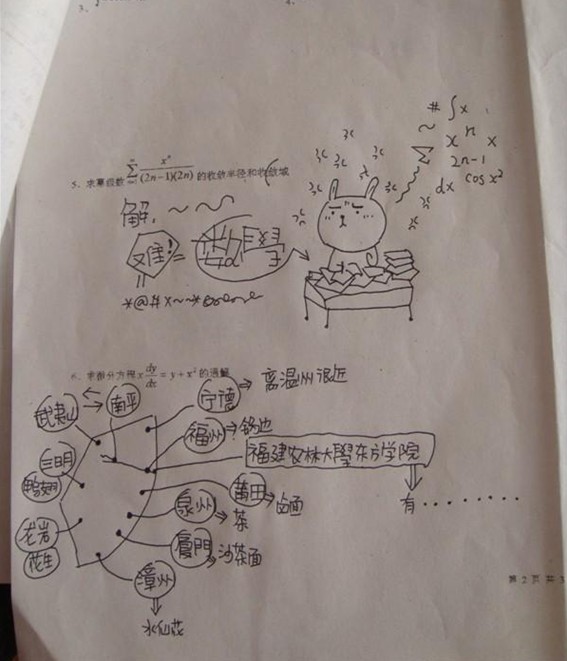 5、求幂级数 ∑ xⁿ/(2n-1)(2n) 的收敛半径和收敛域
解: ～～～
难! = 数學
# ∫x
～ xⁿ x
2n-1
dx cosx²
6、求微分方程 x dy/dx = y + x² 的通解
宁德 ⇒ 离温州很近
武夷山 南平
福州 → 锅边
福建农林大學东方学院
三明
鸭翅
莆田 → 卤面
有........
泉州 ⇒ 茶
龙岩
花生
厦門 沙茶面
漳州
水仙花
第 2 页 共 3